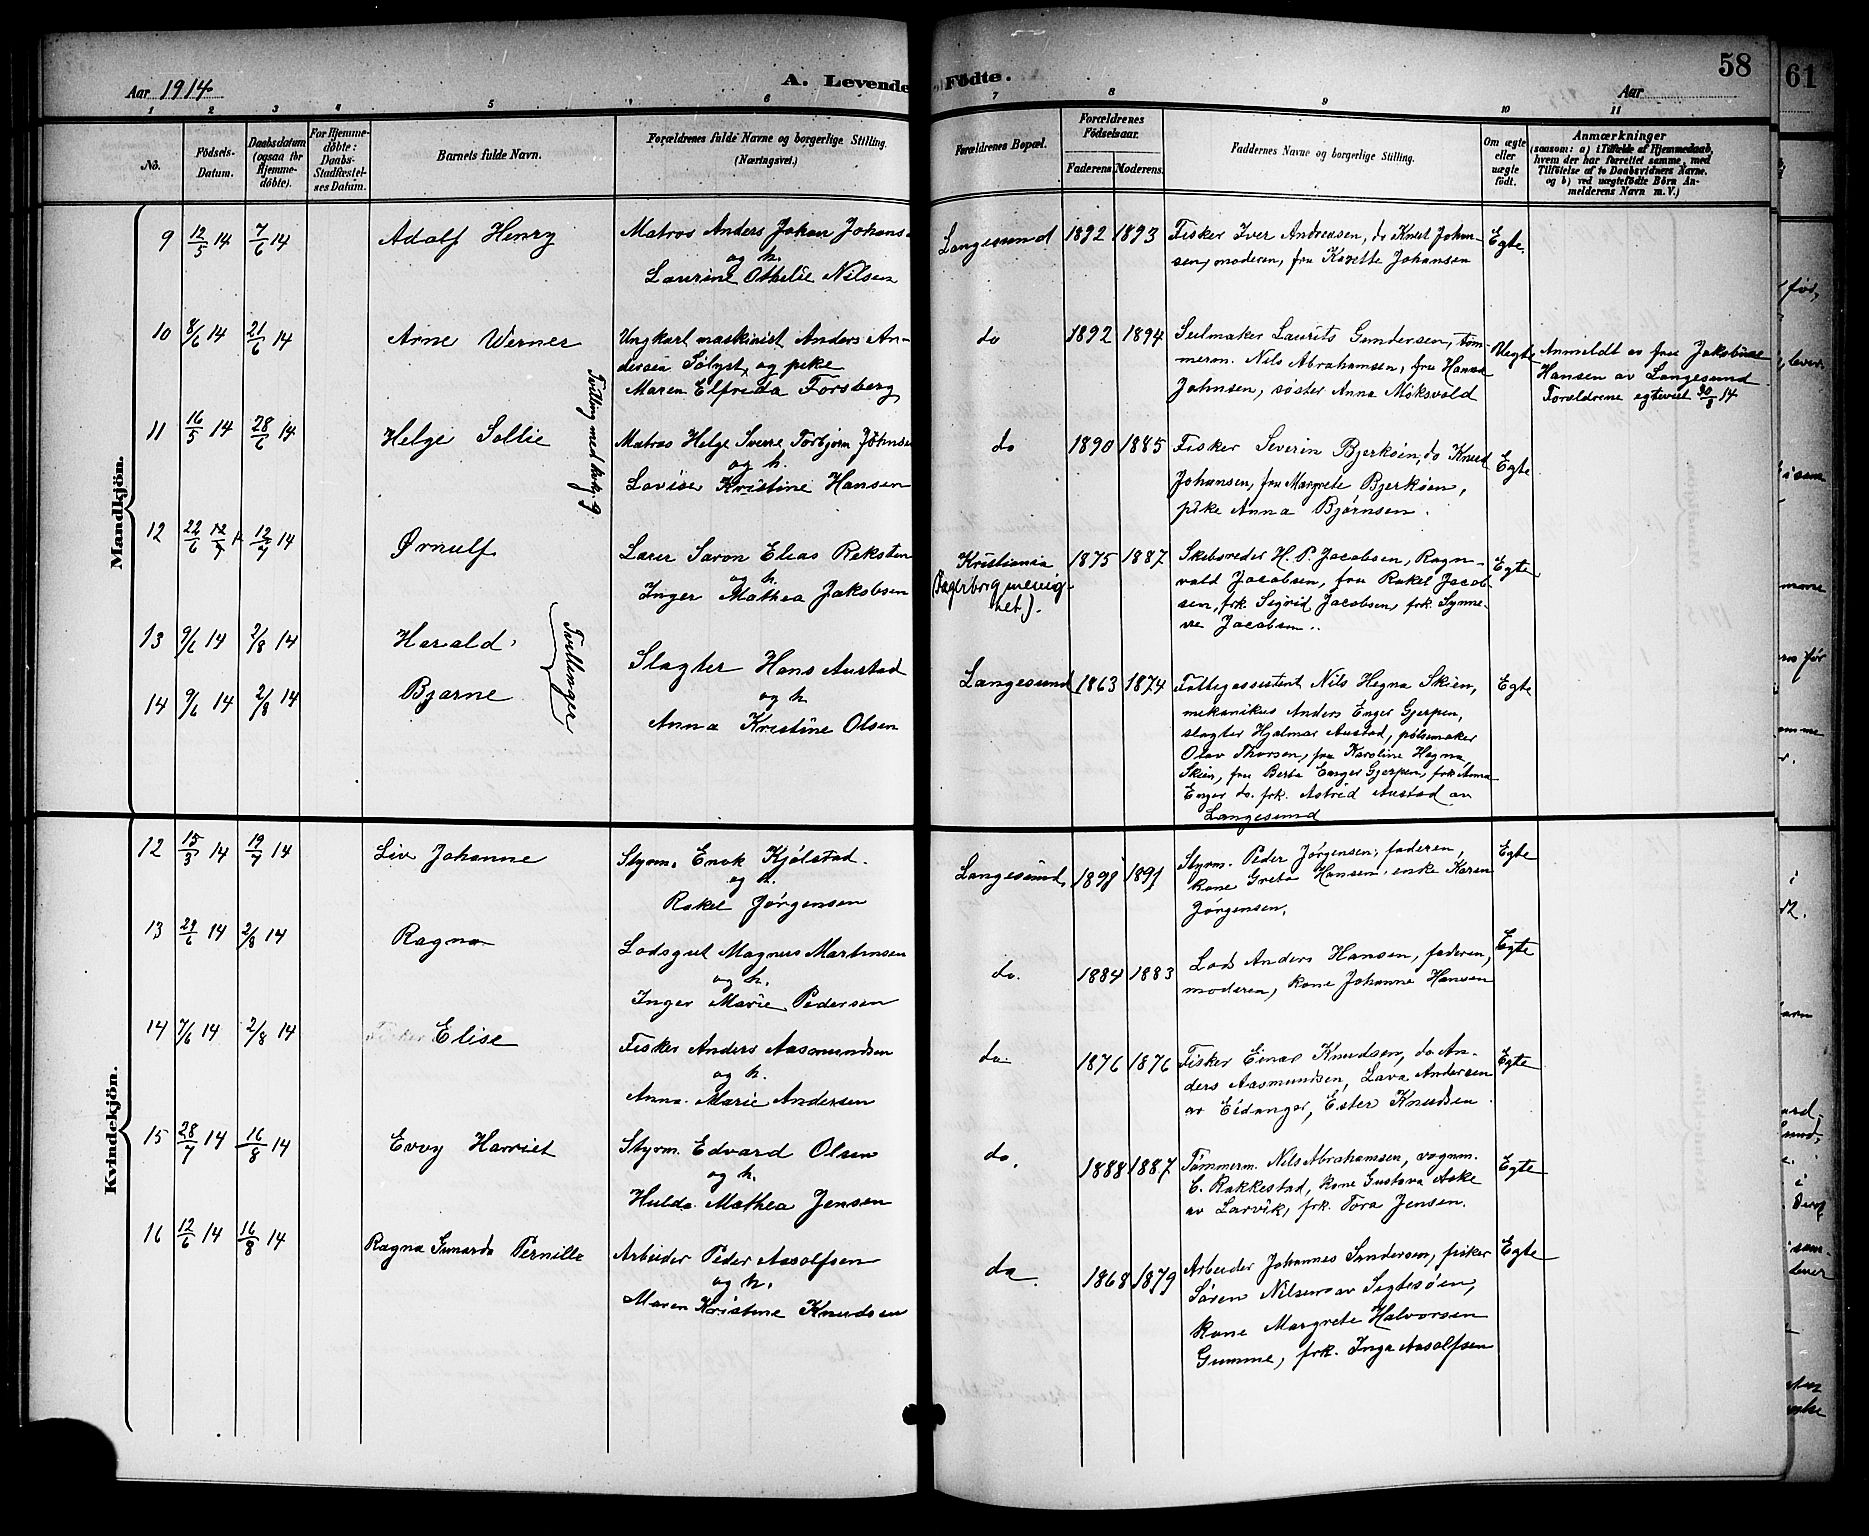 58
61
Aar 1914.
A. Levende Födte.
Aar
1 2 3 4 5 6 7 8 9 10 11
No.
Födsels-Datum.
Daabsdatum (ogsaa for Hjemme-döbte).
For Hjemme-döbte: Daabs-Stadfæstel-ses Datum.
Barnets fulde Navn.
Forældrenes fulde Navne og borgerlige Stilling. (Næringsvei.)
Forældrenes Bopæl.
Forældrenes Födselsaar.
Faderens. Moderens.
Faddernes Navne og borgerlige Stilling.
Om ægte eller uægte födt.
Anmærkninger
(saasom: a) i Tilfælde af Hjemmedaab,
hvem der har forrettet samme, med
Tilföielse af to Daabsvidners Navne.
og b) ved uægtefödte Börn An-
melderens Navn m. V.)
Mandkjön.
9 12/5 14 7/6 14 Adolf Henry
Matros Anders Johan Johans
og h.
Laurine Othelie Nilsen
Langesund 1892 1893
Fisker Iver Andreasen, do Knut Johan-
sen, moderen, fru Karette Johansen
Egte.
10 8/6 14 21/6 14 Arne Werner
Ungkarl maskinist Anders An-
dersen Sölyst, og pike
Maren Elfrida Forsberg
do 1892 1894
Seilmaker Laurits Gundersen, töm-
merm. Nils Abrahamsen, fru Hanna
Johnsen, søster Anna Moksvold
Uegte
Anmeldt av fru Jakobine
Hansen av Langesund
Forældrene egteviet 30/8 14
11 16/5 14 28/6 14 Helge Sollie
Tvilling med kvkj. 9
Matros Helge Sverre Torbjørn Johnsen
og h.
Lovise Kristine Hansen
do 1890 1885
Fisker Severin Bjerköen, do Knud
Johansen, fru Margrete Bjerköen,
pike Anna Bjørnsen.
Egte
12 22/6 12/7 14 Ørnulf
Lærer Søren Elias Reksten
og h.
Inger Mathea Jakobsen
Kristiania
(Fagerborg menig-
het). 1875 1887
Skibsreder H. P. Jacobsen, Ragn-
vald Jacobsen, fru Rakel Jacob-
sen, frk. Sigrid Jacobsen, frk. Synnø-
ve Jacobsen..
Egte
13 9/6 14 2/8 14 Harald
14 9/6 14 2/8 14 Bjarne
Tvillinger
Slagter Hans Austad
og h
Anna Kristine Olsen
Langesund 1863 1874
Fattigassistent Nils Hegna Skien,
mekanikus Anders Enger Gjerpen,
slagter Hjalmar Austad, pølsemaker
Olav Thorsen, fru Karoline Hegna
Skien, fru Berta Enger Gjerpen, frk Anna
Enger do. frk. Astrid Austad av
Langesund
Egte
Kvindekjön.
12 15/3 14 19/7 14 Liv Johanne
Styrm. Enok Kjölstad.
og h.
Rakel Jørgensen
Langesund 1898 1891
Styrm. Peder Jørgensen, faderen,
kone Greta Hansen, enke Karen
Jørgensen.
Egte
13 29/6 14 2/8 14 Ragna
Lodsgut Magnus Martinsen
og h.
Inger Marie Pedersen
do. 1884 1883
Lods Anders Hansen, faderen,
moderen, kone Johanne Hansen
Egte
14 7/6 14 2/8 14 Elise
Fisker Anders Aasmundsen
og h.
Anna Marie Andersen
do. 1876 1876
Fisker Einar Knudsen, do An-
ders Aasmundsen, Lava Andersen
av Eidanger, Ester Knudsen.
Egte
15 28/7 14 16/8 14 Evvy Harriet
Styrm. Edvard Olsen
og h.
Hulda Mathea Jensen
do. 1888 1887
Tømmerm. Nils Abrahamsen, vognm.
C. Rakkestad, kone Gustava Aske
av Larvik, frk. Tora Jensen.
Egte
16 12/6 14 16/8 14 Ragna Gunarda Pernille
Arbeider Peder Aasolfsen
og h.
Maren Kristine Knudsen
do. 1868 1879
Arbeider Johannes Sundersen, fisker
Søren Nilsen av Sigtesøen,
kone Margrete Halvorsen
Gumme, frk. Inga Aasolfsen
Egte